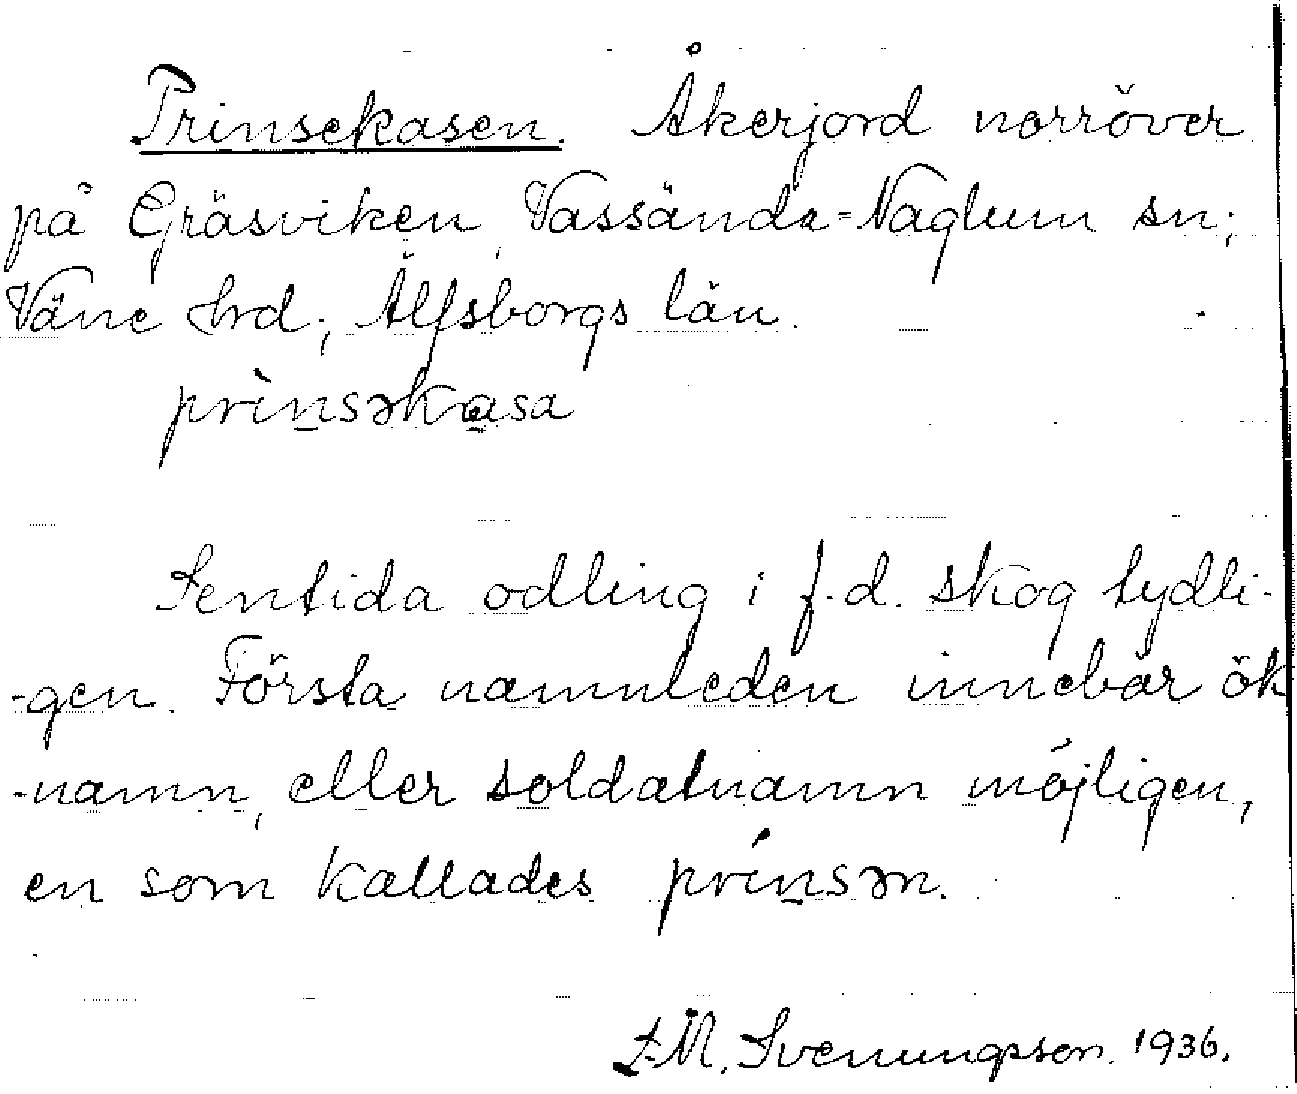 Prinsekasen. Åkerjord norröver
på Gräsviken, Vassända-Naglum sn;
Väne hrd; Älfsborgs län.
prìnsəkasa
Sentida odling i f.d. skog tydli-
-gen. Första namnleden innebär ök
-namn, eller soldatnamn möjligen,
en som kallades prínsən.
F.M. Svenungsson. 1936.